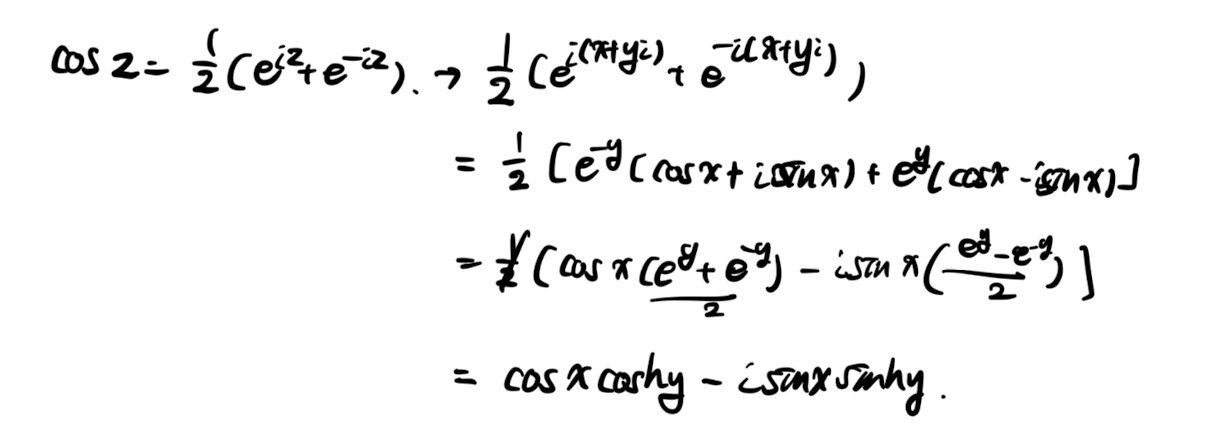 cos z = 1/2 (e^{iz} + e^{-iz}). → 1/2 (e^{i(x+yi)} + e^{-i(x+yi)})
= 1/2 [e^{-y}(cos x + i sin x) + e^{y}(cos x - i sin x)]
= 1/2 [cos x (e^{y} + e^{-y})/2 - i sin x ((e^{y} - e^{-y})/2)]
= cos x cosh y - i sin x sinh y.